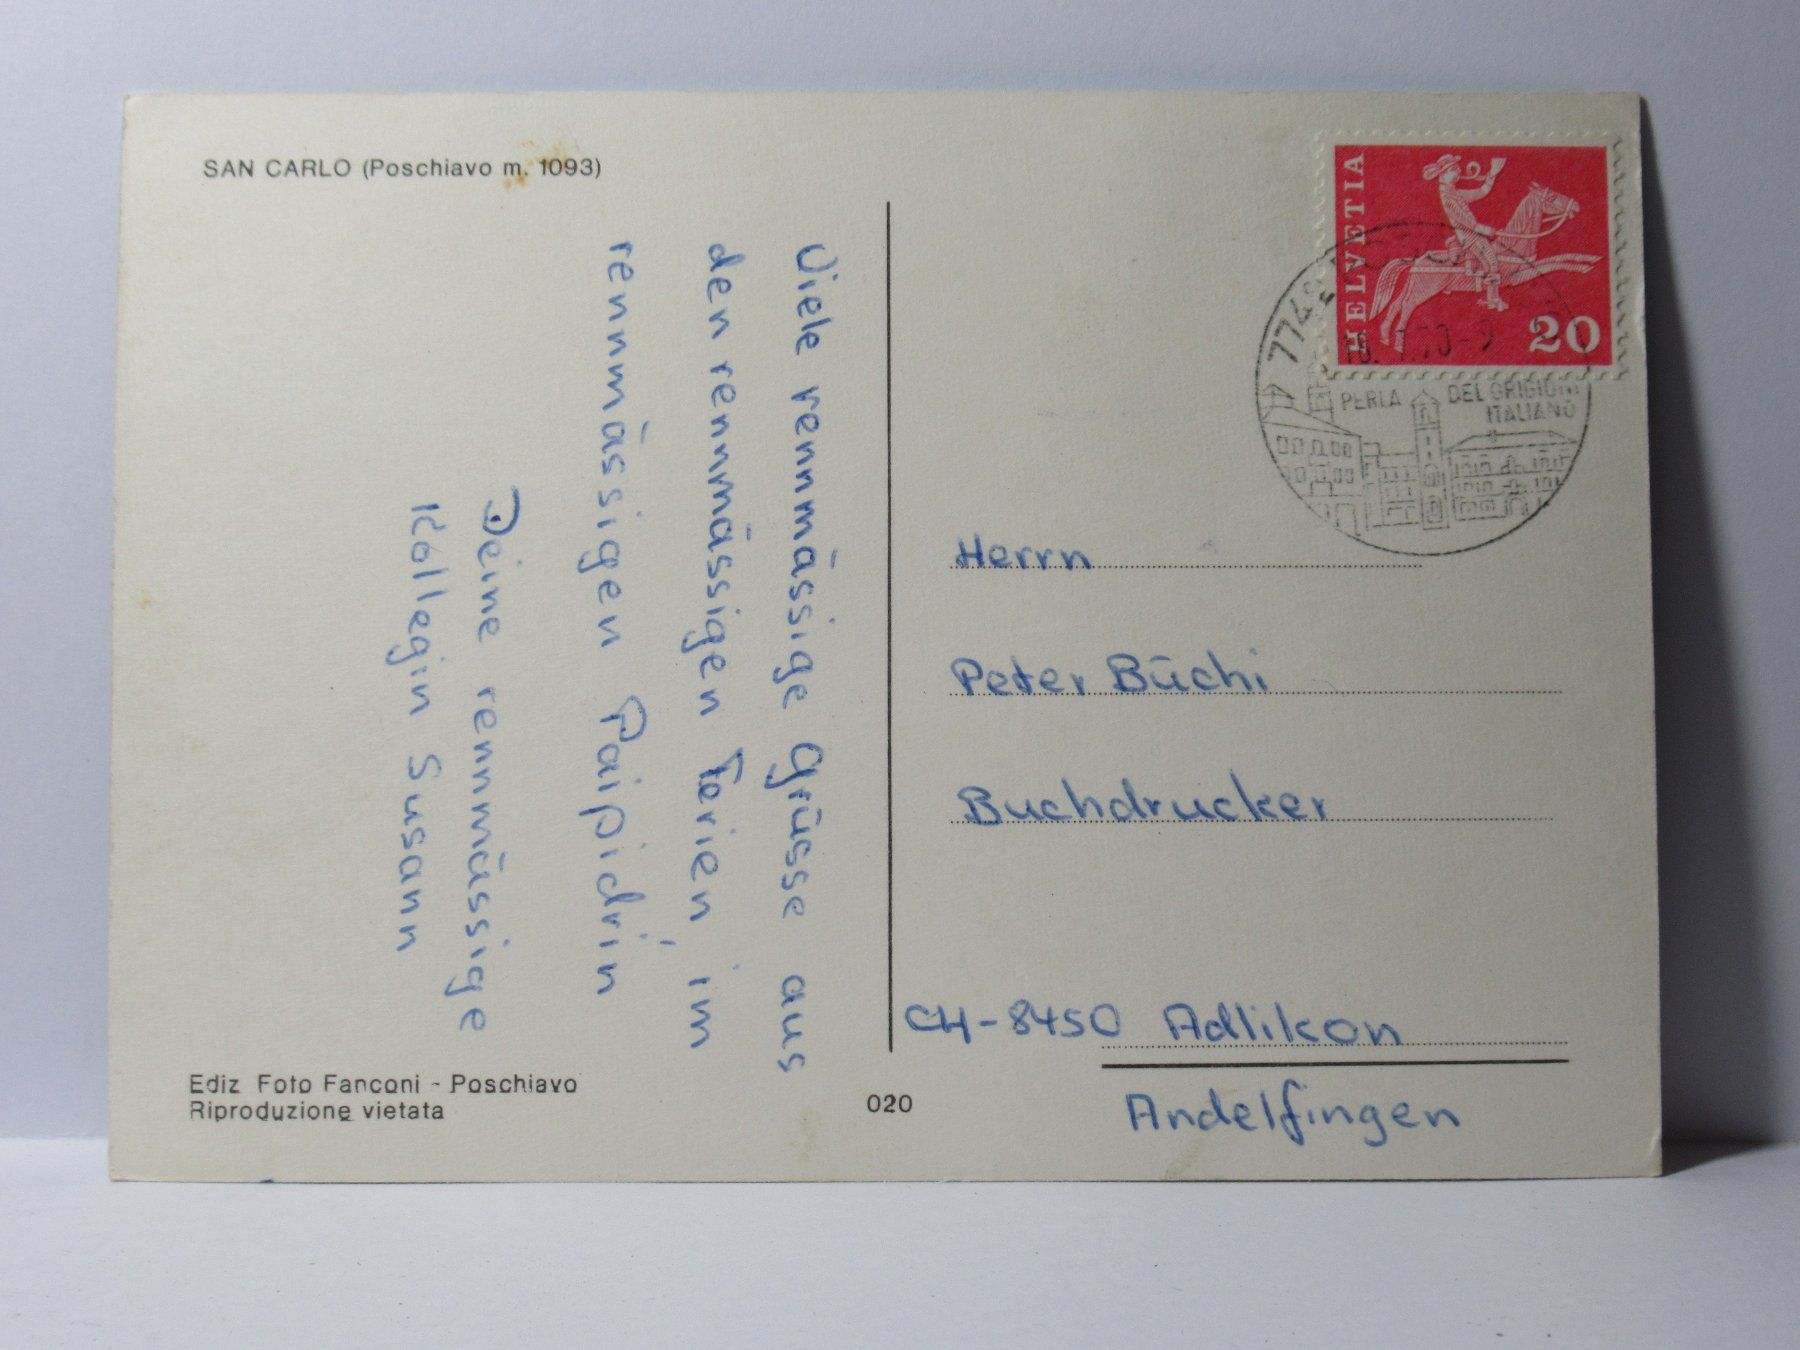 SAN CARLO (Poschiavo m. 1093)
Viele rennmässige Grüsse aus
den rennmässigen Ferien, im
rennmässigen Paipidrin
Deine rennmässige
Kollegin Susann
Ediz Foto Fanconi - Poschiavo
Riproduzione vietata
020
HELVETIA
20
774
70-9
PERLA DEL GRIGIONI
ITALIANO
Herrn
Peter Büchi
Buchdrucker
CH-8450 Adlikon
Andelfingen